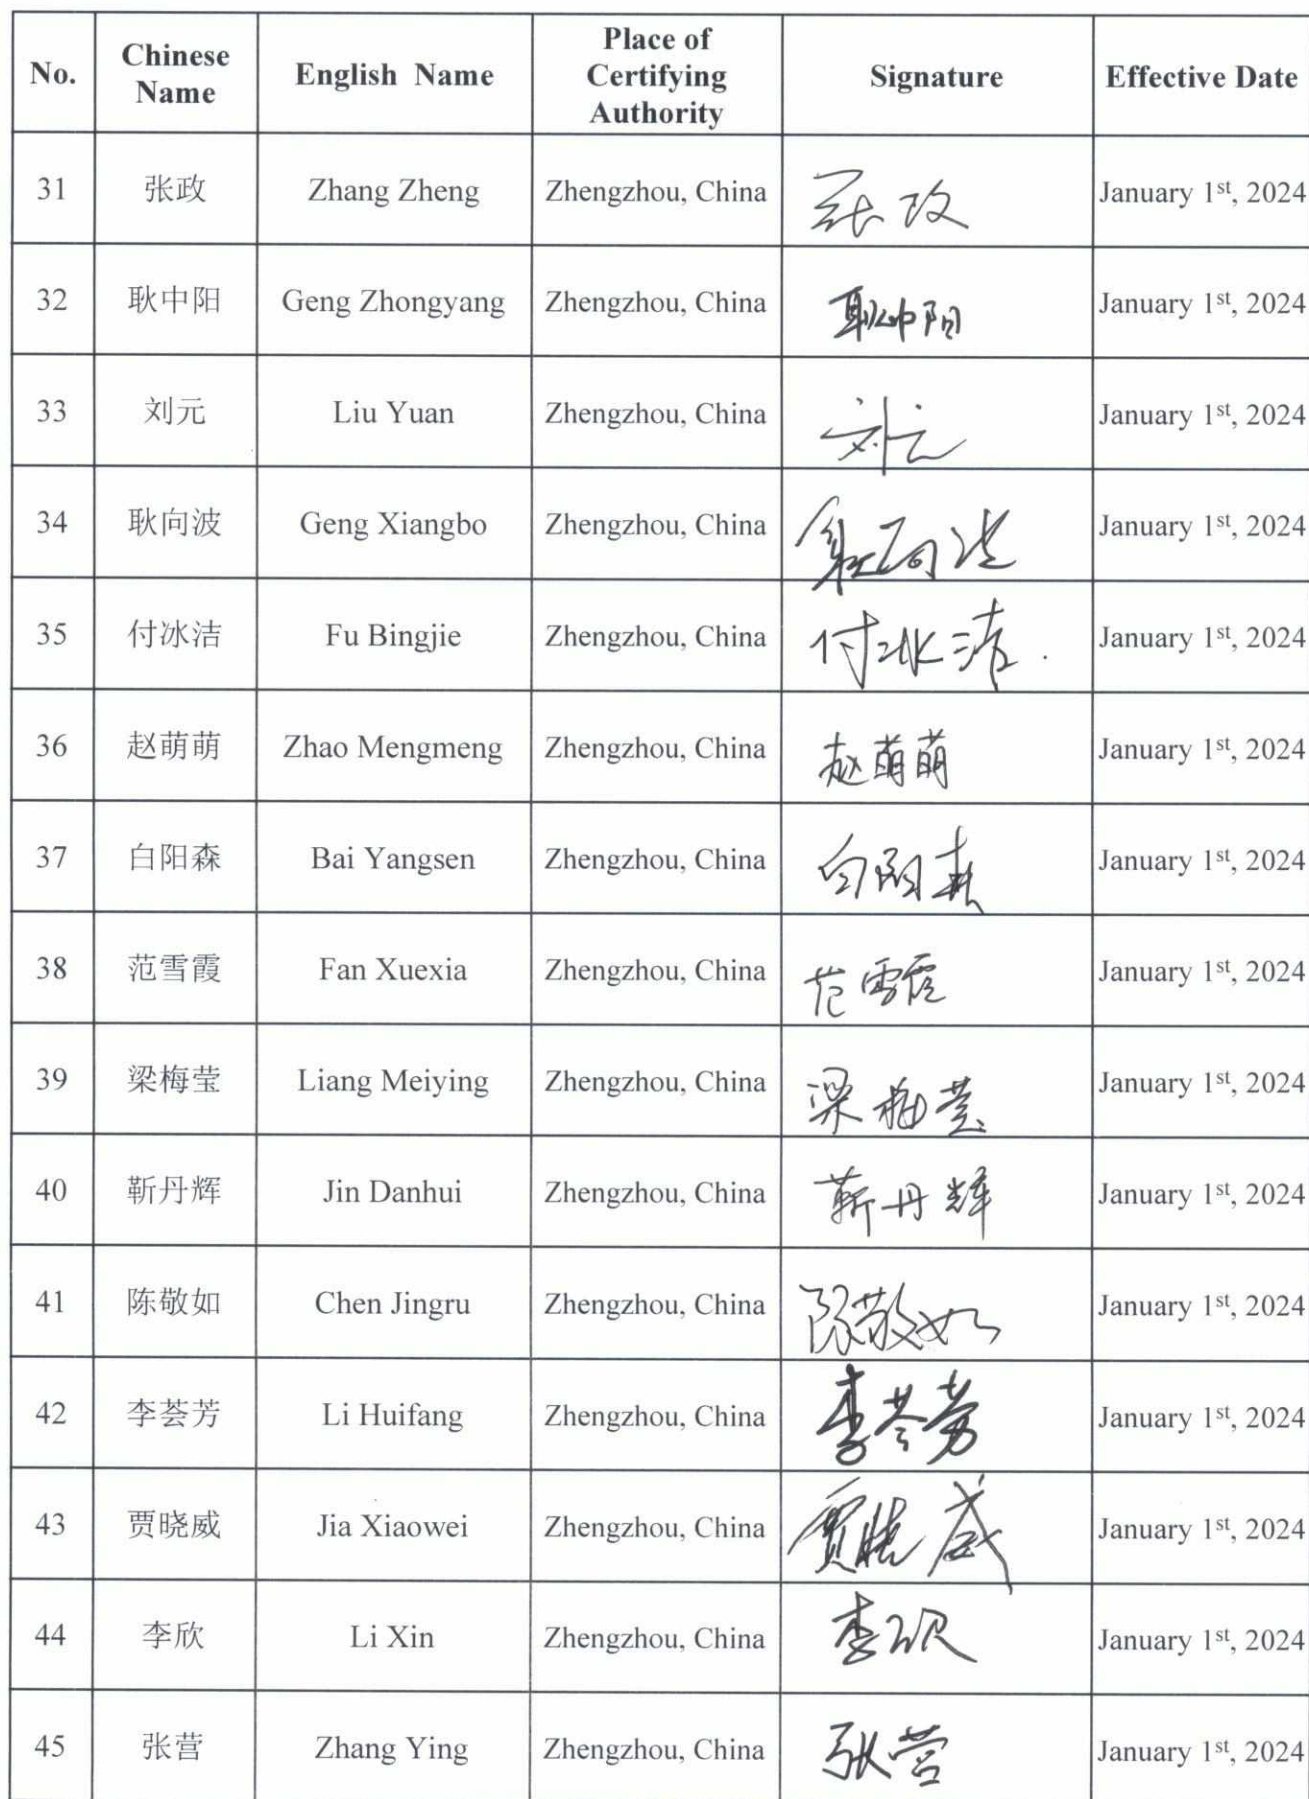 No. Chinese Name English Name Place of Certifying Authority Signature Effective Date
31 张政 Zhang Zheng Zhengzhou, China 张政 January 1st, 2024
32 耿中阳 Geng Zhongyang Zhengzhou, China 耿中阳 January 1st, 2024
33 刘元 Liu Yuan Zhengzhou, China 刘元 January 1st, 2024
34 耿向波 Geng Xiangbo Zhengzhou, China 耿向波 January 1st, 2024
35 付冰洁 Fu Bingjie Zhengzhou, China 付冰洁 January 1st, 2024
36 赵萌萌 Zhao Mengmeng Zhengzhou, China 赵萌萌 January 1st, 2024
37 白阳森 Bai Yangsen Zhengzhou, China 白阳森 January 1st, 2024
38 范雪霞 Fan Xuexia Zhengzhou, China 范雪霞 January 1st, 2024
39 梁梅莹 Liang Meiying Zhengzhou, China 梁梅莹 January 1st, 2024
40 靳丹辉 Jin Danhui Zhengzhou, China 靳丹辉 January 1st, 2024
41 陈敬如 Chen Jingru Zhengzhou, China 陈敬如 January 1st, 2024
42 李荟芳 Li Huifang Zhengzhou, China 李荟芳 January 1st, 2024
43 贾晓威 Jia Xiaowei Zhengzhou, China 贾晓威 January 1st, 2024
44 李欣 Li Xin Zhengzhou, China 李欣 January 1st, 2024
45 张营 Zhang Ying Zhengzhou, China 张营 January 1st, 2024